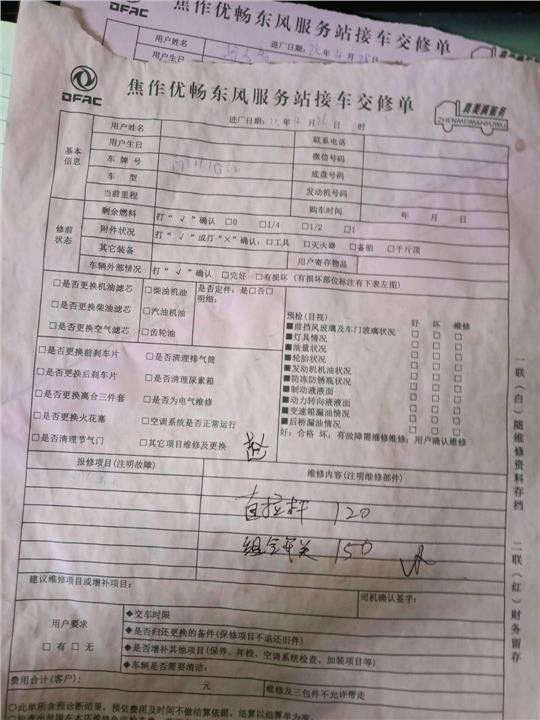 焦作优畅东风服务站接车交修单
用户姓名
进厂日期: 年4月28日
用户生日
DFAC
焦作优畅东风服务站接车交修单
真美满服务
ZHENMEIMANFUWU
进厂日期: 年4月 日 时
基本信息
用户姓名 联系电话
用户生日 微信号码
车牌号 底盘号码
车型 发动机号码
当前里程 购车时间 年 月 日
修前状态
剩余燃料 打“√”确认 □0 □1/4 □1/2 □1
附件状况 打“√”或打“×”确认:口工具 □灭火器 □备胎 □千斤顶
其它装备 用户寄存物品
车辆外部情况 打“√”确认 □完好 □有损坏(有损坏部位标注有下表左图)
□是否更换机油滤芯 □柴油机油 是否定件:是□否□
明细:
□是否更换柴油滤芯 □汽油机油
□是否更换空气滤芯 □齿轮油
□是否更换前刹车片 □是否清理排气筒
□是否更换后刹车片 □是否清理尿素箱
□是否更换离合三件套 □是否为电气维修
□是否更换火花塞 □空调系统是否正常运行
□是否清理节气门 □其它项目维修及更换
预检(目视) 好 坏 维修
■前挡风玻璃及车门玻璃状况 □ □ □
■灯具情况 □ □ □
■油量状况 □ □ □
■轮胎状况 □ □ □
■发动机机油状况 □ □ □
■防冻防锈瓶状况 □ □ □
■制动液液面 □ □ □
■动力转向液液面 □ □ □
■变速箱漏油情况 □ □ □
■后桥漏油情况 □ □ □
好:合格 坏:有故障需维修维修:用户确认维修
报修项目(注明故障) 维修内容(注明维修部件)
直拉杆 120
组合开关 150
建议维修项目或增补项目:
司机确认签字:
用户要求
□有 □无
◆交车时限
◆是否归还更换的备件(保修项目不退还旧件)
◆是否增补其他项目(保养、年检、空调系统检查、加装项目等)
◆车辆是否需要清洁:
费用合计(客户): 元 维修及三包件不允许带走
○此单所含预诊断结果,预估费用及时间不做结算依据,结算以结算单为准。
一联(白)随维修资料存档 二联(红)财务留存